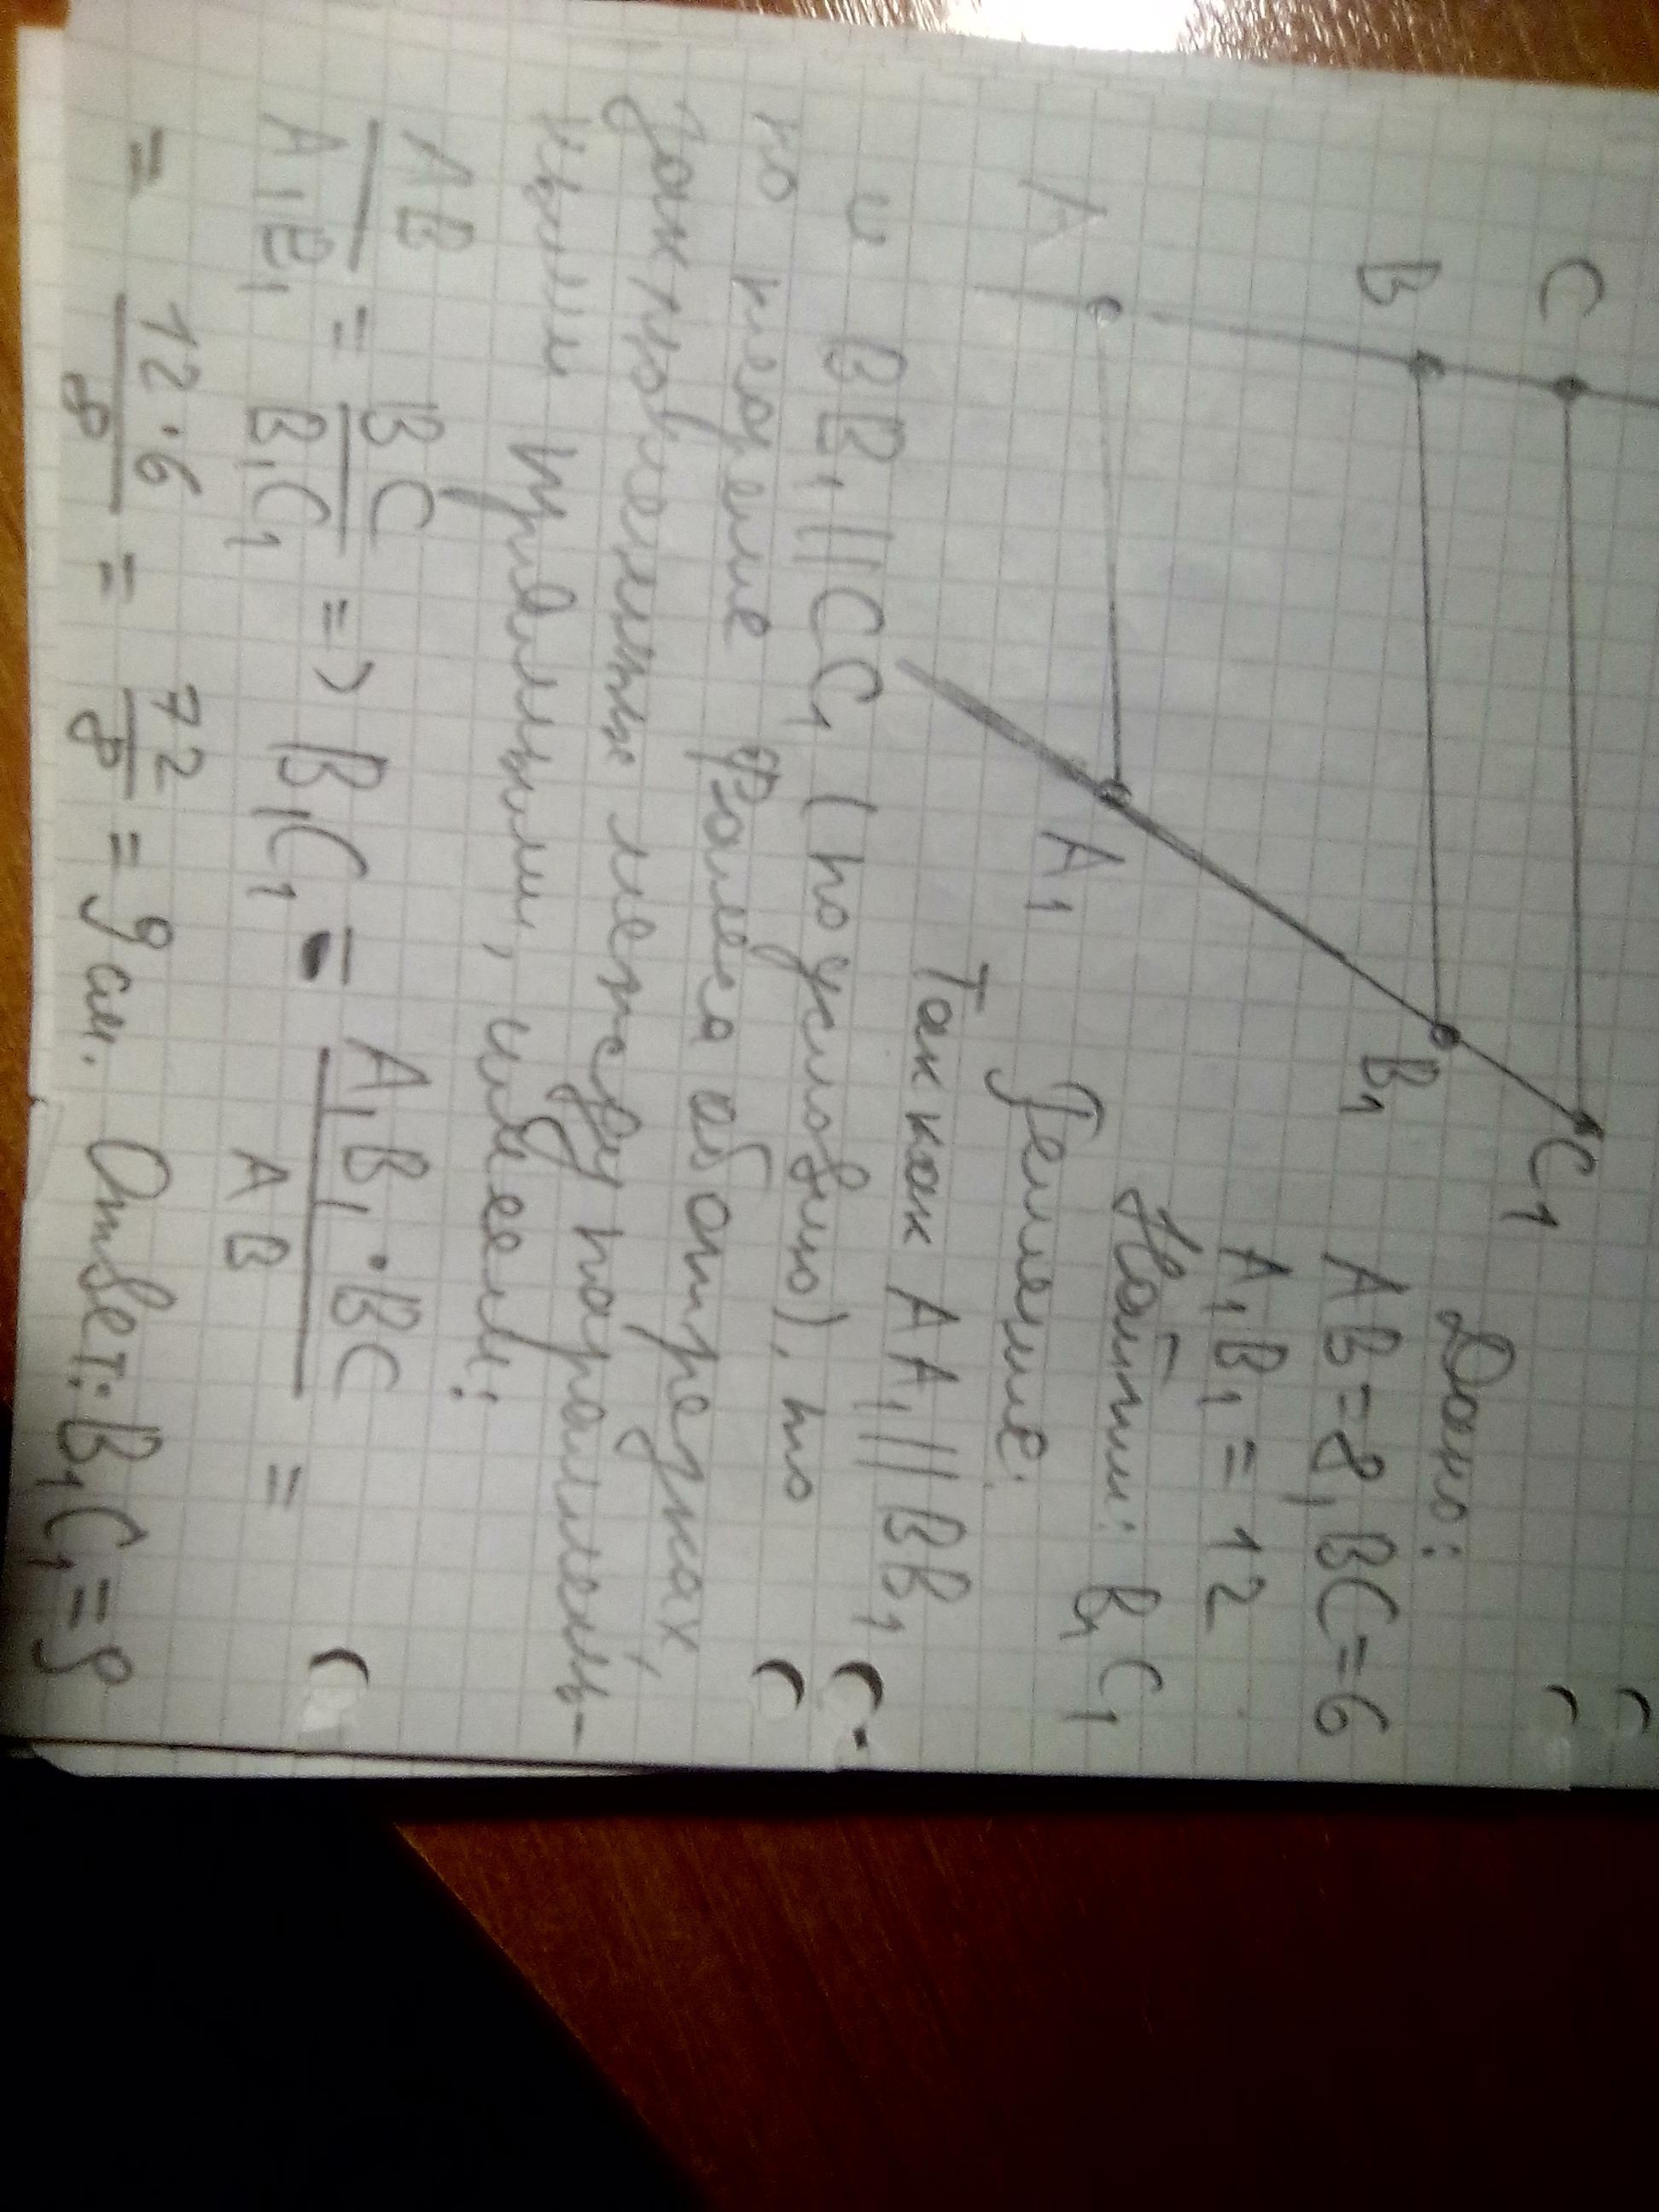 C
B
A
C₁
B₁
A₁
Дано:
AB=8, BC=6
A₁B₁=12
Найти: B₁C₁
Решение:
Так как AA₁||BB₁
и BB₁||CC₁ (по условию), то
по теореме Фалеса об отрезках,
заключенных между параллель-
ными прямыми, имеем:
AB/A₁B₁ = BC/B₁C₁ => B₁C₁ = A₁B₁·BC/AB =
= 12·6/8 = 72/8 = 9 см. Ответ: B₁C₁=9